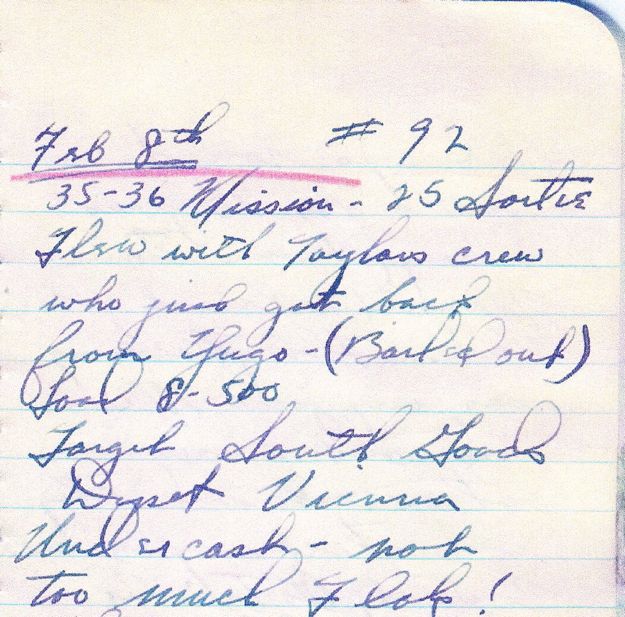 Feb 8th # 92
35-36 Mission - 25 Sortie
Flew with Taylors crew
who just got back
from Yugo - (Bailed out)
Load 8-500
Target South Goods
Depot Vienna
Undercast - not
too much Flak!